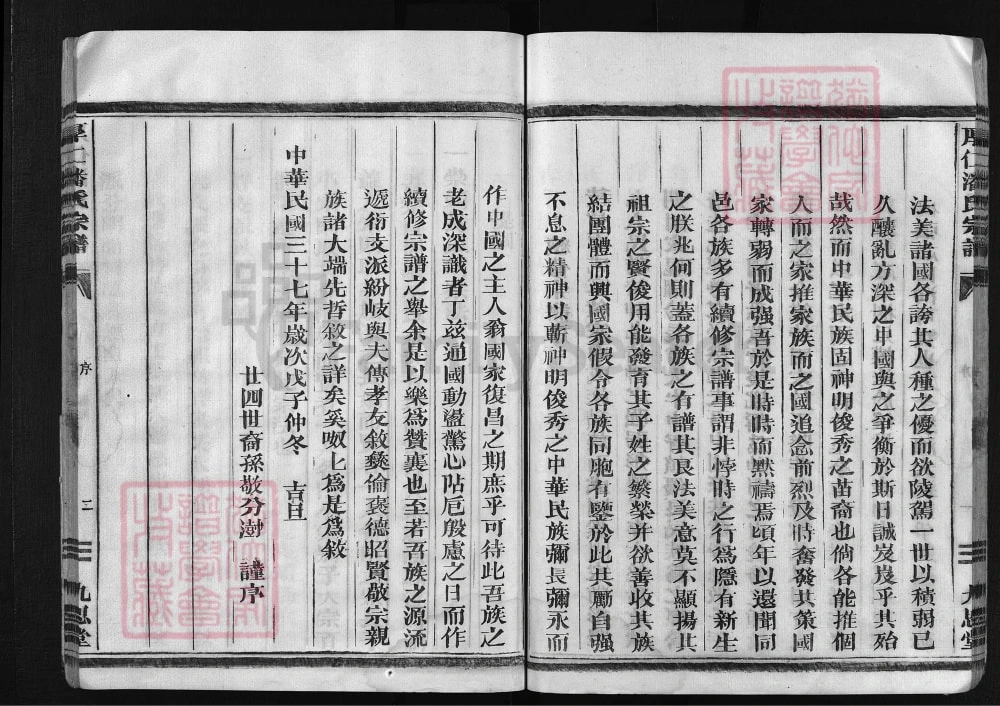 法美諸國各誇其人種之優而欲陵駕一世以積弱已
久釀亂方深之中國與之爭衡於斯日誠岌岌乎其殆
哉然而中華民族固神明俊秀之苗裔也倘各能推個
人而之家推家族而之國追念前烈及時奮發共策國
家轉弱而成强吾於是時時而默禱焉頃年以還聞同
邑各族多有續修宗譜事謂非悖時之行爲隱有新生
之朕兆何則蓋各族之有譜其良法美意莫不顯揚其
祖宗之賢俊用能發育其子姓之繁榮并欲善收其族
結團體而興國家假令各族同胞有鑒於此共勵自强
不息之精神以蘄神明俊秀之中華民族彌長彌永而
厚仁潘氏宗譜
九思堂
作中國之主人翁國家復昌之期庶乎可待此吾族之
老成深識者丁兹通國動盪驚心阽厄殷慮之日而作
續修宗譜之舉余是以樂爲贊襄也至若吾族之源流
遞衍支派紛岐與夫傳孝友敘彝倫褒德昭賢敬宗親
族諸大端先哲敘之詳矣奚呶七爲是爲敘
中華民國三十七年歲次戊子仲冬 吉旦
廿四世裔孫敬分澍 謹序
厚仁潘氏宗譜
序
二
九思堂